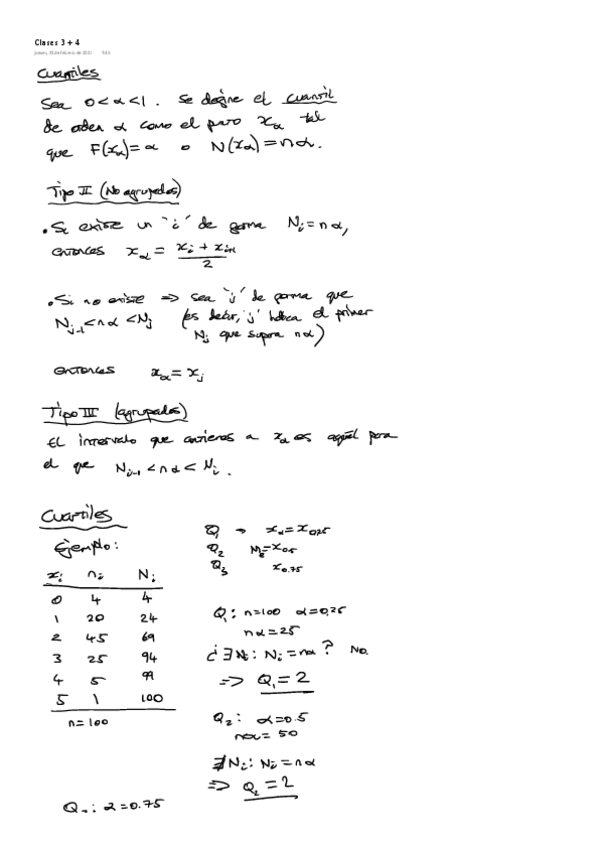 Clases 3 + 4
Cuantiles
Sea 0<α<1. Se define el cuantil
de orden α como el punto xα tal
que F(xα)=α o N(xα)=nα.
Tipo II (No agrupados)
• Si existe un "i" de forma Ni=nα,
entonces xα = (xi + xi+1)/2
• Si no existe ⇒ sea "j" de forma que
Nj-1<nα<Nj (es decir, "j" indica el primer
Nj que supera nα)
entonces xα = xj
Tipo III (agrupados)
El intervalo que contiene a xα es aquél para
el que Ni-1 < nα < Ni.
Cuartiles
Ejemplo:
xi ni Ni
0 4 4
1 20 24
2 45 69
3 25 94
4 5 99
5 1 100
n=100
Q1 → xα=x0.25
Q2 Me=x0.5
Q3 x0.75
Q1: n=100 α=0,25
nα=25
¿∃Ni: Ni=nα? No.
⇒ Q1=2
Q2: α=0.5
nα= 50
∄Ni: Ni=nα
⇒ Q2=2
α=0.75